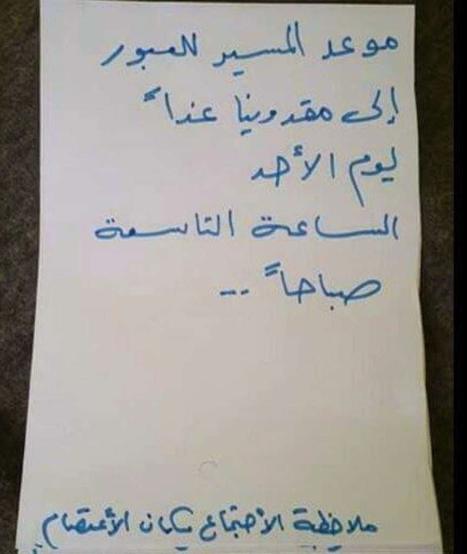 موعد المسير للعبور
إلى مقدونيا غداً
ليوم الأحد
الساعة التاسعة
صباحاً ...
ملاحظة الأجتماع بمكان الأعتصام